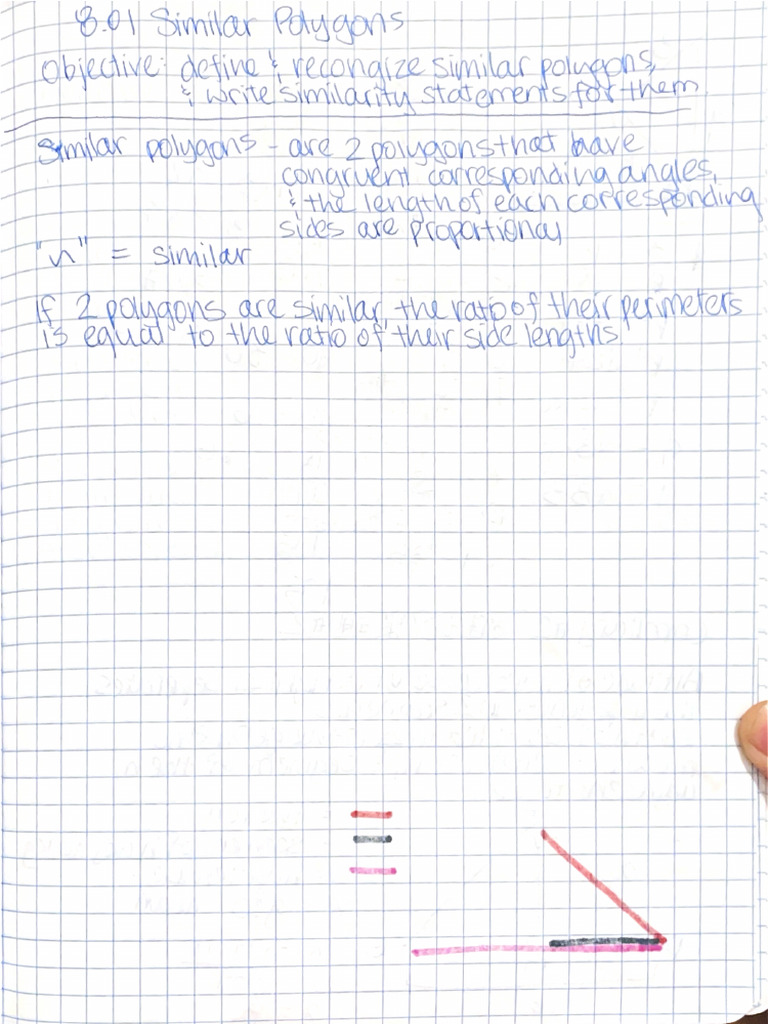 8.01 Similar Polygons
Objective: define & recongize similar polygons,
& write similarity statements for them
Similar polygons - are 2 polygons that have
congruent corresponding angles,
& the length of each corresponding
sides are proportional
"~" = similar
If 2 polygons are similar, the ratio of their perimeters
is equal to the ratio of their side lengths